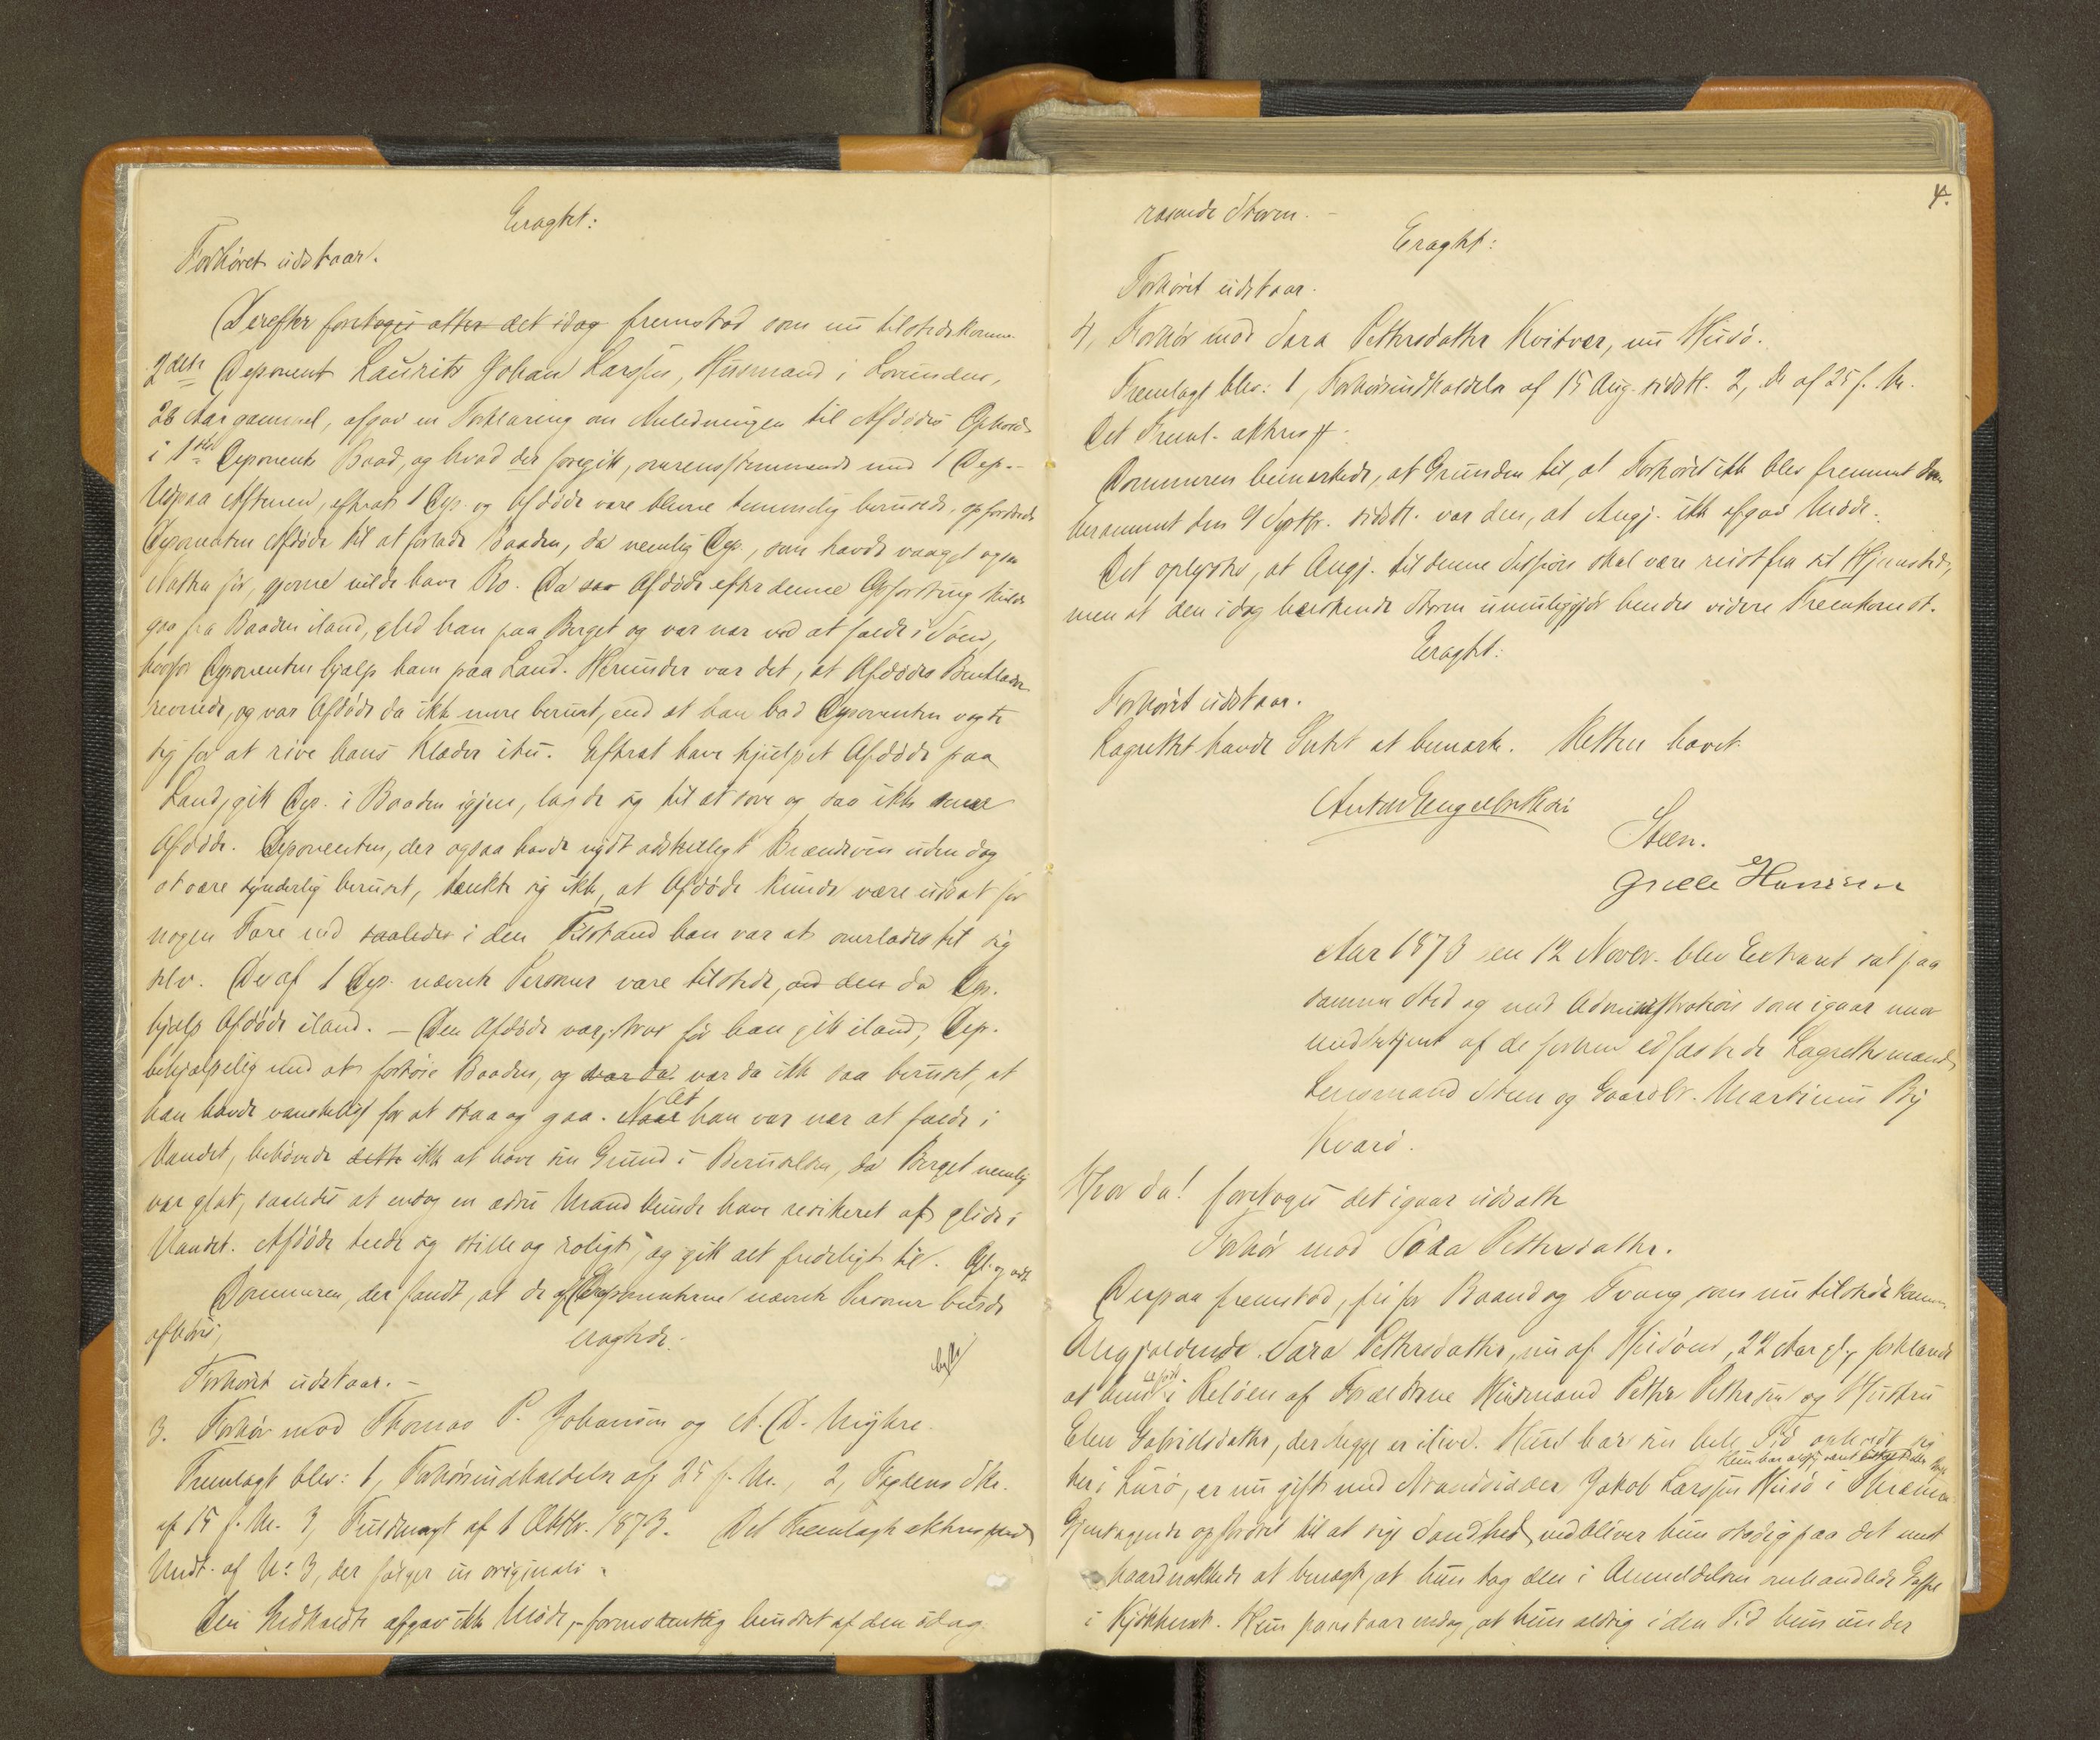 Eragtet:
Forhøret udstaar.
Derefter foretoges atter det idag fremstod som nu tilstedekomne
2den Deponent Laurits Johan Larssen, Husmand i Lovunden,
26 Aar gammel, afgav en Forklaring om Anledningen til Afdødes Ophold
i 1ste Deponents Baad, og hvad der foregik, overensstemmende med 1 Dep.
Udpaa Aftenen, efterat 1 Dep. og Afdøde vare blevne temmelig berusede, opfordrede
Deponenten Afdøde til at forlade Baaden, da nemlig Dep., som havde vaaget ogsaa
Natten før, gjerne vilde have Ro. Da saa Afdøde efter denne Opfordring skulde
gaa fra Baaden iland, gled han paa Berget og var nær ved at falde i Søen,
hvorfor Deponenten hjalp ham paa Land. Herunder var det, at Afdødes Benklæder
revnede, og var Afdøde da ikke mere beruset, end at han bad Deponenten vogte
sig for at rive hans Klæder itu. Efterat have hjulpet Afdøde paa
Land, gik Dep. i Baaden igjen, lagde sig til at sove og saa ikke mere
Afdøde. Deponenten, der ogsaa havde nydt adskilligt Brændevin uden dog
at være synderlig beruset, tænkte sig ikke, at Afdøde kunde være udsat for
nogen Fare ved saaledes i den Tilstand han var at overlades til sig
selv. De af 1 Dep. nævnte Personer vare tilstede, ved den da Dep.
hjalp Afdøde iland. – Den Afdøde var, før han gik iland, Dep.
behjælpelig med at fortøie Baaden, og var da var da ikke saa beruset, at
han havde vanskeligt for at staa og gaa. Naar At han var nær at falde i
Vandet, behøvede dette ikke at have sin Grund i Beruselsen, da Berget nemlig
var glat, saaledes at endog en ædru Mand kunde have risikeret at glide i
Vandet. Afdøde teede sig stille og roligt, og gik alt fredeligt til. Opl. og vedt.
Dommeren, der fandt, at de af Deponenterne nævnte Personer burde
afhøres,
eragtede:
Forhøret udstaar. –
3. Forhør mod Thomas P. Johansen og A. D. Myhre.
Fremlagt blev: 1, Forhørsindkaldelse af 25 f. M., 2, Fogdens Skr.
af 15 f. M. 3, Fuldmagt af 1 Oktbr. 1873. Det Fremlagte akteres med
Undt. af No 3, der følger in originali.
Den Indkaldte afgav ikke Møde, formodentlig hindret af den idag
4.
rasende Storm. –
Eragtet:
Forhøret udstaar.
4, Forhør mod Sara Pettersdatter Kvitvær, nu Husø.
Fremlagt blev: 1, Forhørsindkaldelse af 15 Aug. sidstl. 2, Do af 25 f. M.
Det Freml. akteres
Dommeren bemærkede, at Grunden til, at Forhøret ikke blev fremmet som
berammet den 9 Septbr. sidstl. var den, at Angj. ikke afgav Møde.
Det oplystes, at Angj. til denne Session skal være reist fra sit Hjemsted,
men at den idag herskende Storm umuliggjør hendes videre Fremkomst.
Eragtet:
Forhøret udstaar.
Lagrettet havde Intet at bemærke. Retten hævet.
Anton Engelbrethsen
Steen.
Grelle Hanssen
Aar 1873 den 12 Novbr. blev Extraret sat paa
samme Sted og med Administration som igaar men
meddebetjent af de forhen edfæstede Lagrettesmænd
Lensmand Steen og Gaardbr. Martinus By
Kvarø.
Hvor da! foretoges det igaar udsatte
Forhør mod Sara Pettersdatter.
Derpaa fremstod, fri for Baand og Tvang som nu tilstedekommen
Angjældende Sara Pettersdatter, nu af Husøen, 22 Aar gl, forklarede
at hun er født i Reløen af Forældrene Husmand Petter Pettersen og Hustru
Elen Gabrielsdatter, der begge er ilive. Hun har sin hele Tid opholdt sig
Hun har aldrig været
her i Lurø, er nu gift med Strandsidder Jakob Larssen Husø i Træna
Gjentagende opfordret til at sige Sandhed, vedbliver hun stadig paa det mest
haardnakkede at benægte, at hun tog den i Anmeldelsen omhandlede Gaffel
i Kjøkkenet. Hun paastaar endog, at hun aldrig i den Tid hun under